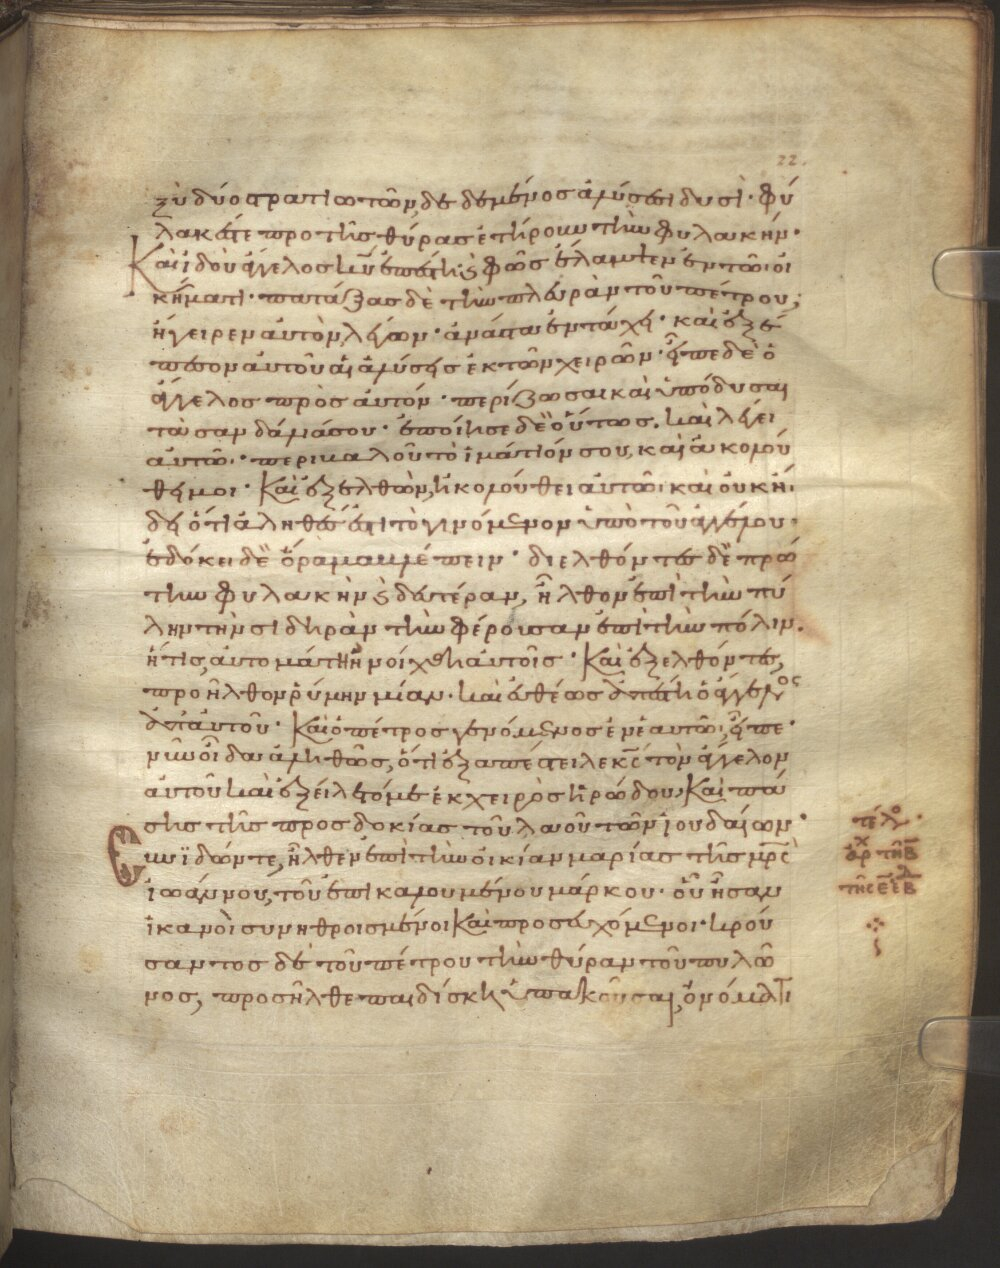 22.
ξὺ δύο στρατιωτῶν, δεδεμένος ἁλύσεσι δυσί· φύ
λακές τε προ τῆς θύρας ἐτήρουν τὴν φυλακήν·
Καὶ ἰδοὺ ἄγγελος κῦ ἐπέστη· ϗ φῶς ἔλαμψεν ἐν τῶ οἰ
κήματι· πατάξας δὲ τὴν πλευρὰν τοῦ πέτρου,
ἤγειρεν αυτὸν λέγων· ἀνάστα ἐν τάχει· καὶ ἐξέ
πεσον αυτοῦ αἱ ἁλύσεις ἐκ τῶν χειρῶν· εἶπε δὲ ὁ
ἄγγελος πρὸς αυτόν· περίζωσαι καὶ ὑπόδυσαι
τὰ σανδάλιά σου· ἐποίησε δὲ οὕτως. καὶ λέγει
αυτῶ· περιβαλοῦ τὸ ἱμάτιόν σου, καὶ ἀκολού
θει μοι· Καὶ ἐξελθὼν, ἠκολούθει αυτῶ· καὶ ουκ ἤ
δει ὅτι ἀληθές ἐστι τὸ γινόμενον ὑπὸ τοῦ ἀγγέλου·
ἐδόκει δὲ ὅραμα βλέπειν· διελθόντες δὲ πρώ
την φυλακὴν ϗ δευτέραν, ἦλθον ἐπὶ τὴν πύ
λην τὴν σιδηρὰν τὴν φέρουσαν ἐπὶ τὴν πόλιν.
ἥτις, αυτομάτη ἠνοίχθη αυτοῖς· Καὶ ἐξελθόντες,
προῆλθον ῥύμην μίαν· καὶ ευθέως ἀπέστη ὁ ἄγγελος
ἀπ' αυτοῦ· Καὶ ὁ πέτρος γενόμενος ἐν ἑαυτῶ, εἶπε·
νῦν οἶδα ἀληθῶς, ὅτι ἐξαπέστειλε κς τὸν ἄγγελον
αυτοῦ καὶ ἐξείλετό με ἐκ χειρὸς ἡρώδου, Καὶ πά
σης τῆς προσδοκίας τοῦ λαοῦ τῶν ἰουδαίων·
Συνϊδών τε, ἦλθεν ἐπὶ τὴν οἰκίαν μαρίας τῆς μρς
ἰωάννου, τοῦ ἐπικαλουμένου μάρκου· οὗ ἦσαν
ἱκανοὶ συνηθροισμένοι Καὶ προσευχόμενοι· κρού
σαντος δὲ τοῦ πέτρου τὴν θύραν τοῦ πυλῶ
νος, προσῆλθε παιδίσκη ὑπακοῦσαι, ὀνόματι
τέλο·
ἀρχ τῆ β
τῆς ε εβ